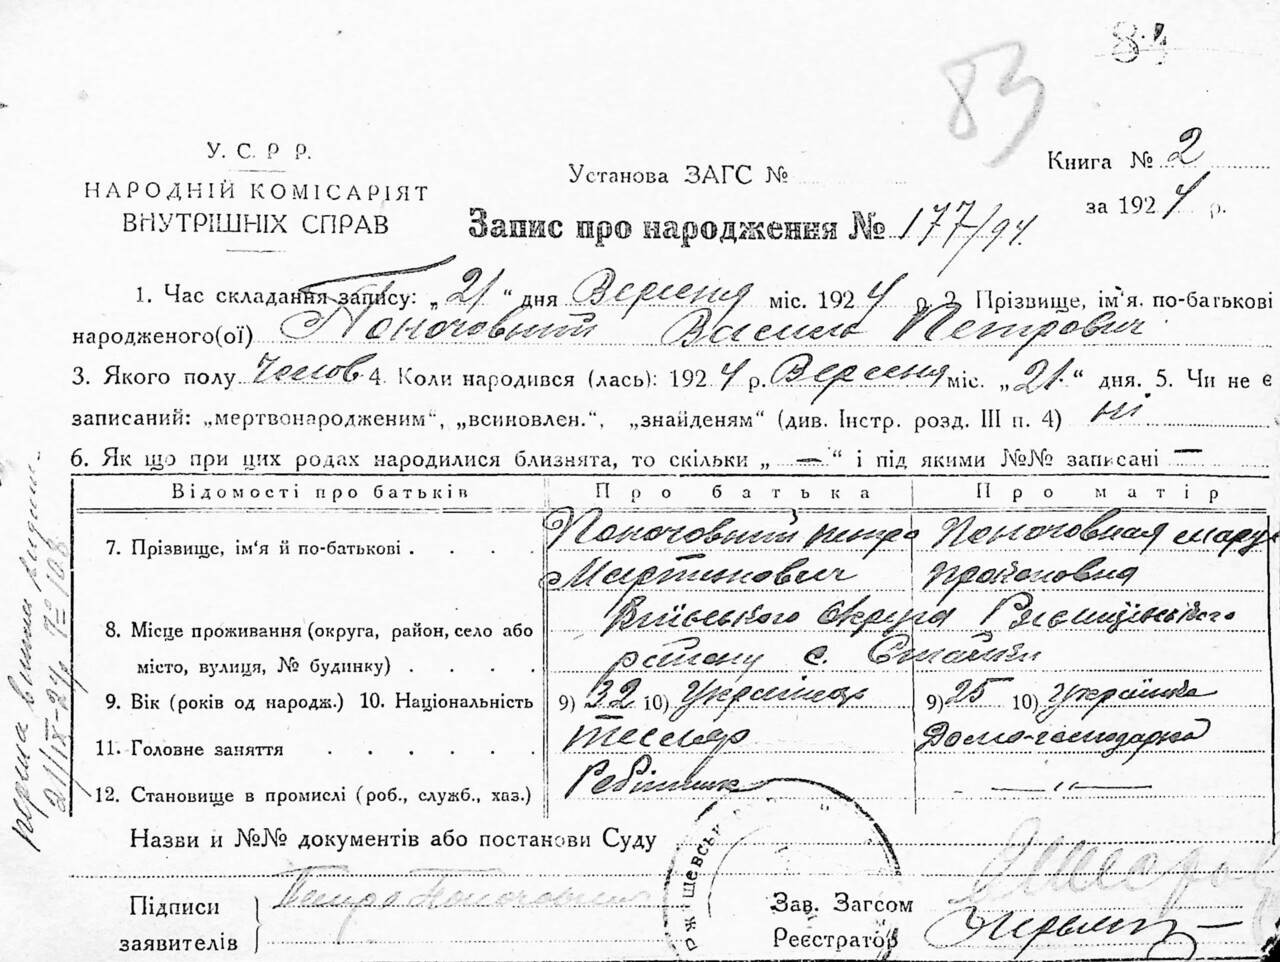 83
У. С. Р Р.
НАРОДНІЙ КОМІСАРІЯТ
ВНУТРІШНІХ СПРАВ
Установа ЗАГС №
Книга № 2
за 1924 р.
Запис про народження № 177/94.
1. Час складання запису: „21" дня Вересня міс. 1924 р. 2. Прізвище, ім'я, по-батькові
народженого(ої) Поночовний Василь Петрович
3. Якого полу Чолов 4. Коли народився (лась): 1924 р. Вересня міс. „21" дня. 5. Чи не є
записаний: „мертвонародженим", „всиновлен.", „знайденям" (див. Інстр. розд. III п. 4) ні
6. Як що при цих родах народилися близнята, то скільки „—" і під якими №№ записані —
Відомості про батьків Про батька Про матір
7. Прізвище, ім'я й по-батькові . . . . Поночовний Петро Поночовная
Мартинович
8. Місце проживання (округа, район, село або
місто, вулиця, № будинку) . . . . району с. Стайки
9. Вік (років од народж.) 10. Національність 9) 32 10) Українець 9) 25 10) Українка
11. Головне заняття . . . . . . Тесляр Домо-господарка
12. Становище в промислі (роб., служб., хаз.) — " —
Назви й №№ документів або постанови Суду
Підписи
заявителів
Петро Поночовний
Зав. Загсом
Реєстратор